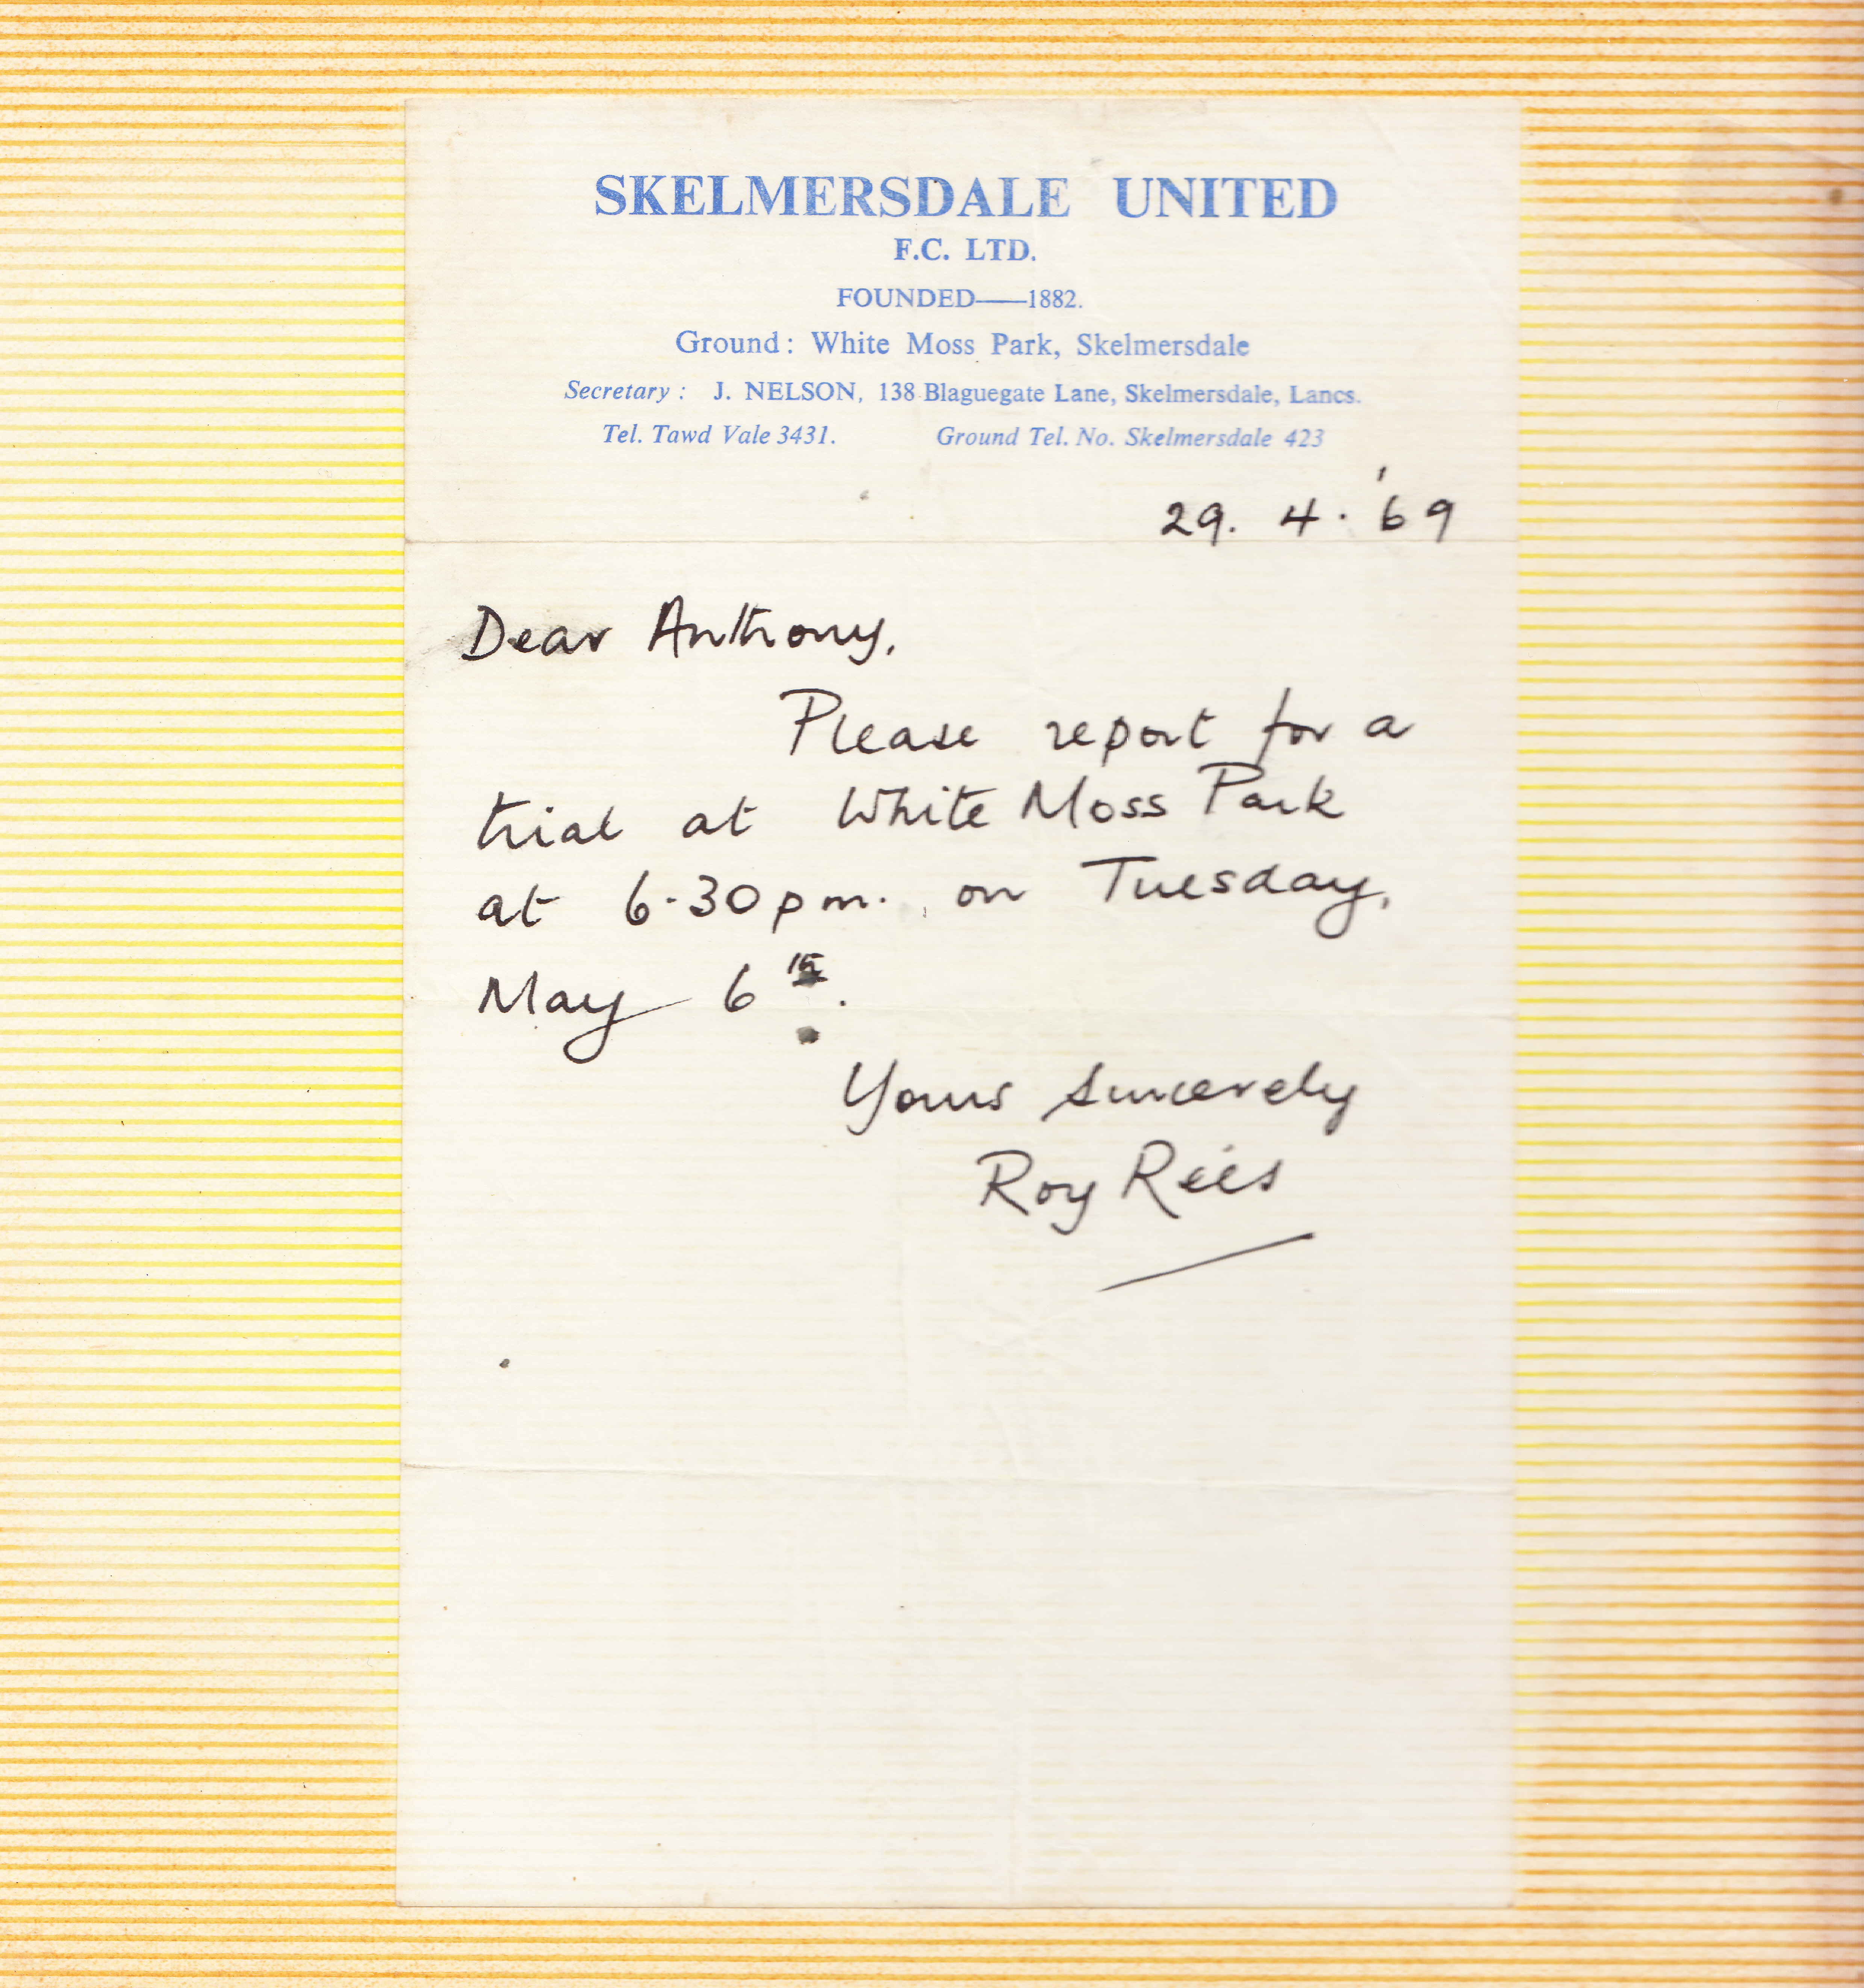 SKELMERSDALE UNITED
F.C. LTD.
FOUNDED——1882.
Ground: White Moss Park, Skelmersdale
Secretary: J. NELSON, 138 Blaguegate Lane, Skelmersdale, Lancs.
Tel. Tawd Vale 3431. Ground Tel. No. Skelmersdale 423
29. 4. '69
Dear Anthony,
Please report for a
trial at White Moss Park
at 6.30pm. on Tuesday,
May 6th.
Yours sincerely
Roy Rees